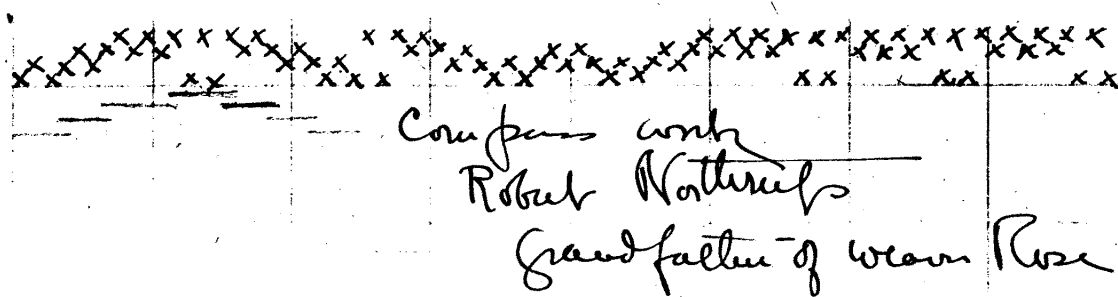 Compass work
Robert Northrup
Grandfather of weaver Rose